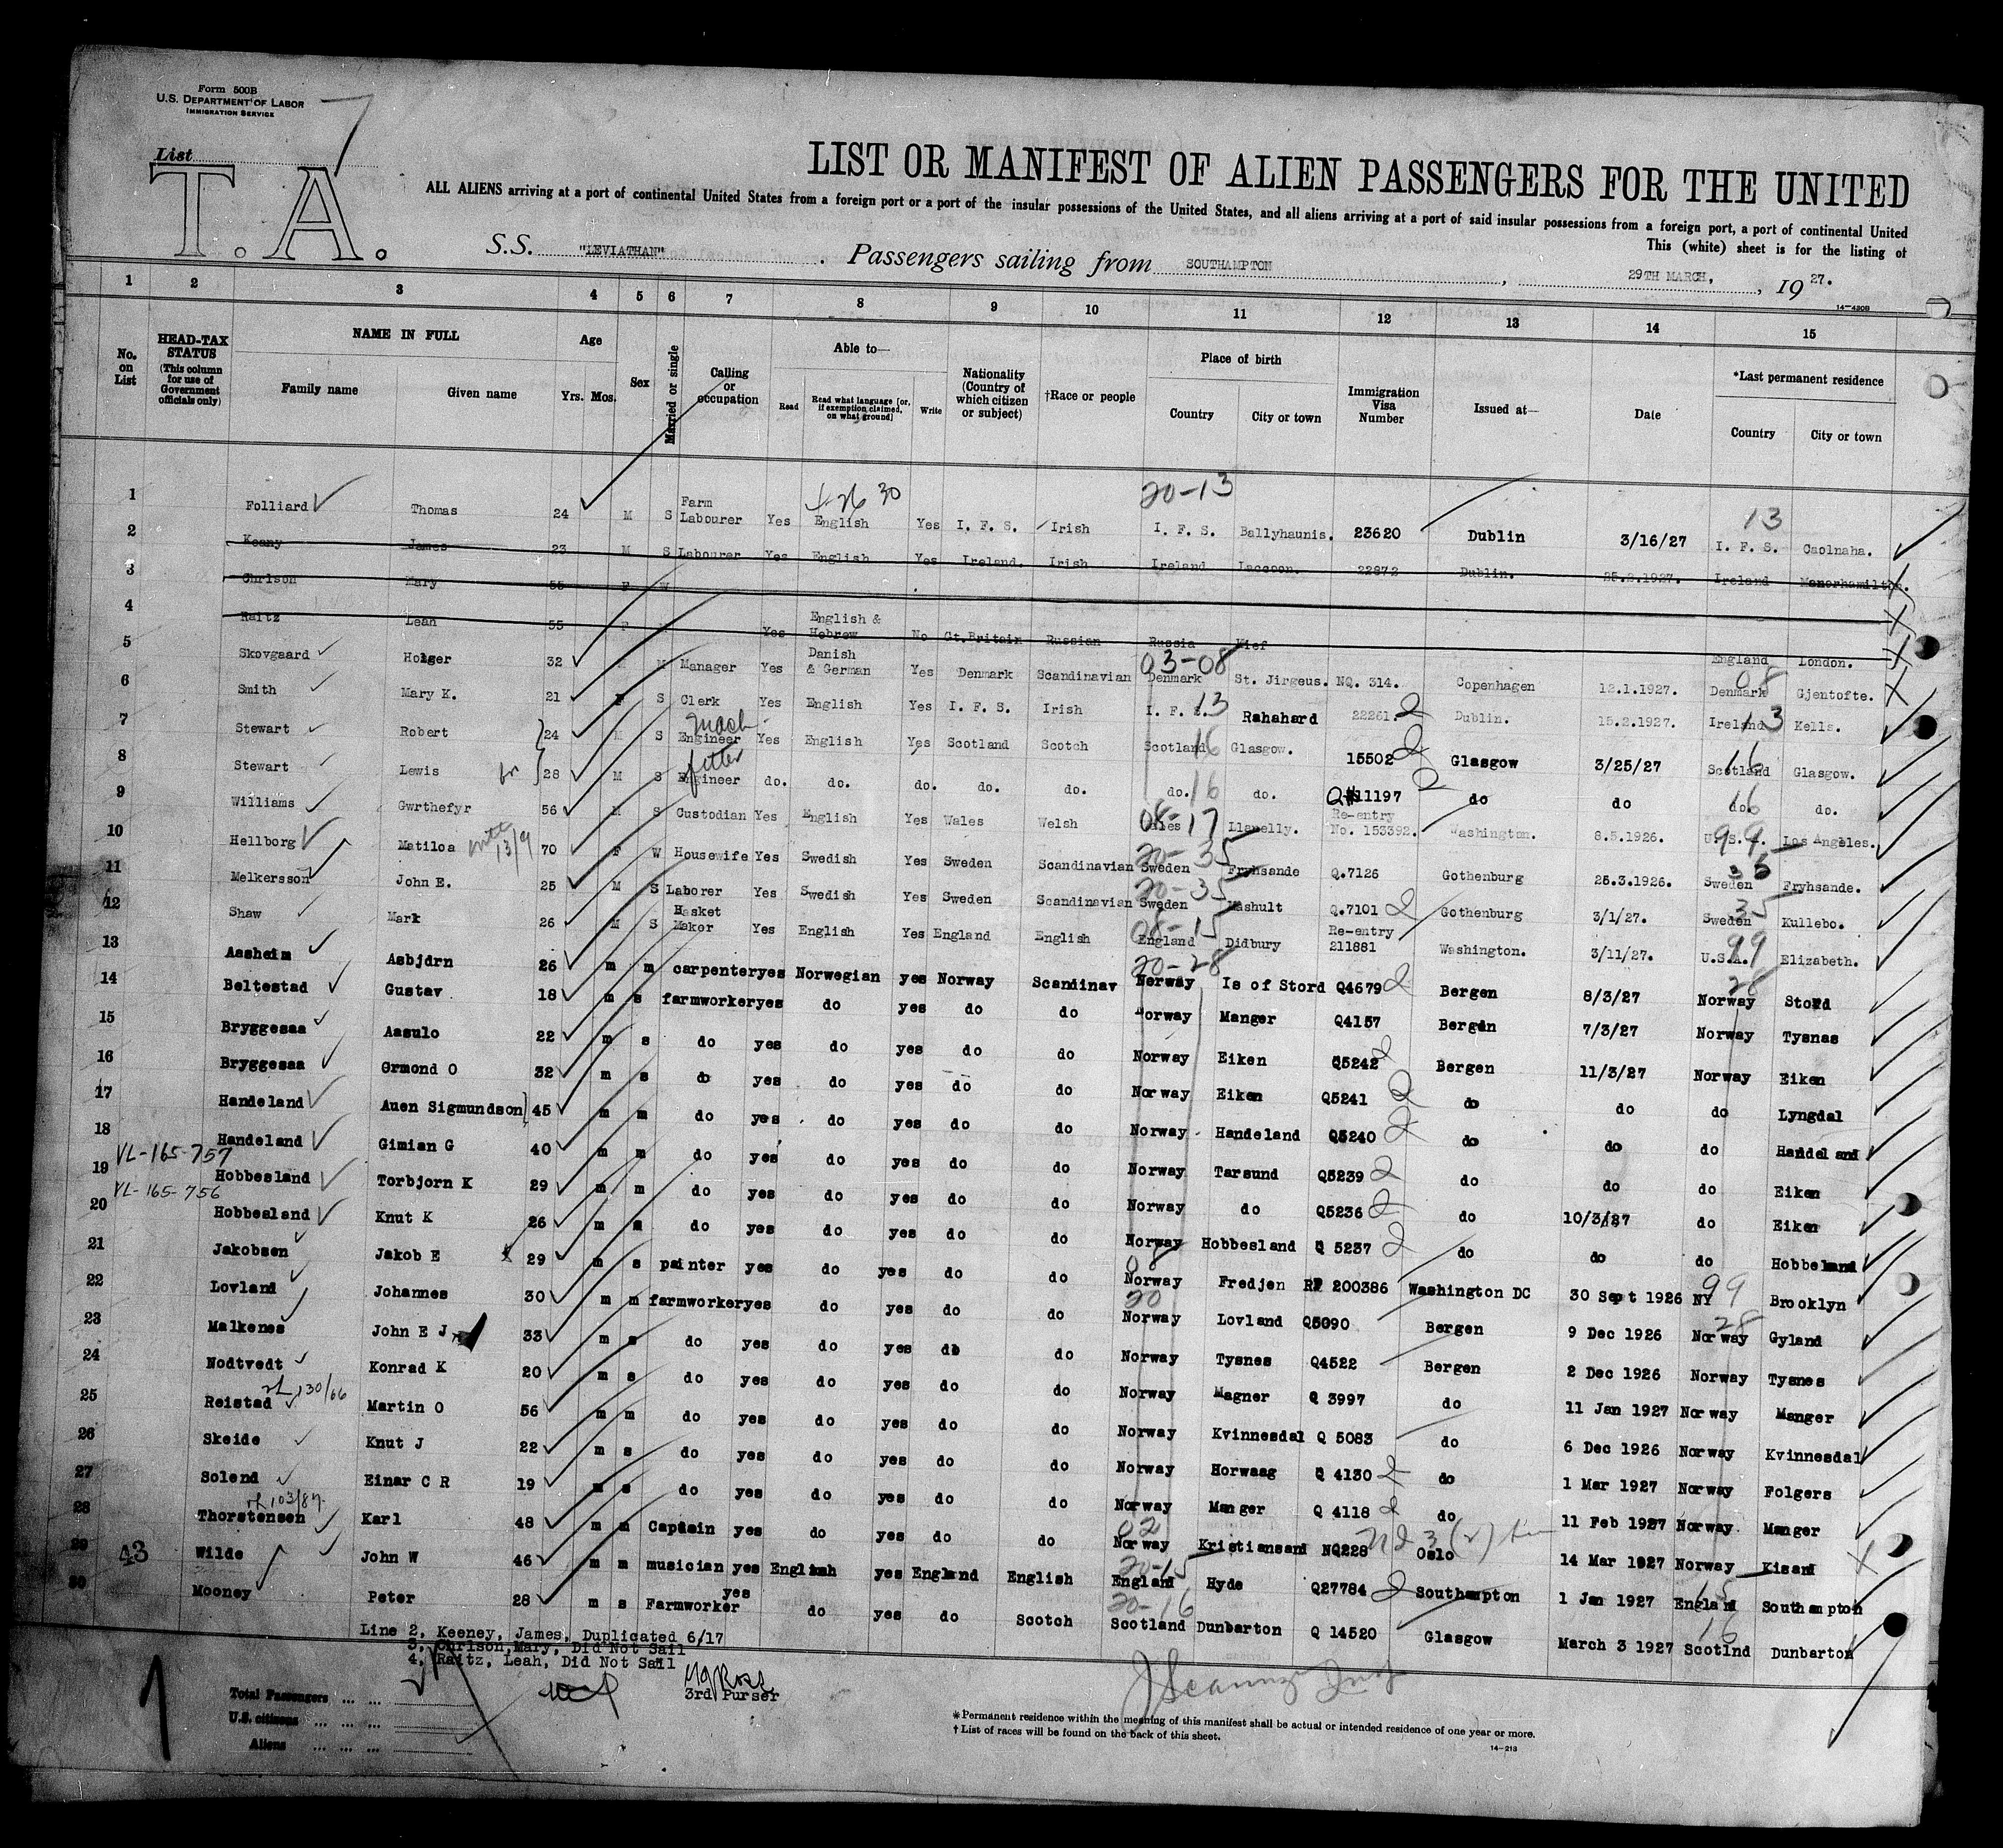 Form 500B
U.S. DEPARTMENT OF LABOR
IMMIGRATION SERVICE
List 7
T. A.
LIST OR MANIFEST OF ALIEN PASSENGERS FOR THE UNITED
ALL ALIENS arriving at a port of continental United States from a foreign port or a port of the insular possessions of the United States, and all aliens arriving at a port of said insular possessions from a foreign port, a port of continental United
This (white) sheet is for the listing of
S.S. "LEVIATHAN" . Passengers sailing from SOUTHAMPTON , 29TH MARCH, , 19 27.
14-430B
1 2 3 4 5 6 7 8 9 10 11 12 13 14 15
No. on List
HEAD-TAX STATUS (This column for use of Government officials only)
NAME IN FULL
Family name Given name
Age
Yrs. Mos.
Sex
Married or single
Calling or occupation
Able to—
Read Read what language [or, if exemption claimed, on what ground] Write
Nationality (Country of which citizen or subject)
†Race or people
Place of birth
Country City or town
Immigration Visa Number
Issued at—
Date
*Last permanent residence
Country City or town
20-13 13
1 Folliard Thomas 24 M S Farm Labourer Yes English Yes I. F. S. Irish I. F. S. Ballyhaunis. 23620 Dublin 3/16/27 I. F. S. Caolnaha.
2 Keany James 23 M S Labourer Yes English Yes Ireland. Irish Ireland Laccoon. 22872 Dublin. 25.2.1927. Ireland Manorhamilton.
3 Chrlson Mary 55 F W
4 Raitz Leah 55 F Yes English & Hebrew No Gt.Britain Russian Russia Kief England London.
5 Skovgaard Holger 32 M Manager Yes Danish & German Yes Denmark Scandinavian 03-08 Denmark St. Jirgeus. NQ. 314. Copenhagen 12.1.1927. 08 Denmark Gjentofte.
6 Smith Mary K. 21 F S Clerk Yes English Yes I. F. S. Irish I. F. S. 13 Rahahard 22261. Dublin. 15.2.1927. Ireland 13 Kells.
7 Stewart Robert 24 M S mach. Engineer Yes English Yes Scotland Scotch Scotland 16 Glasgow. 15502 Glasgow 3/25/27 16 Scotland Glasgow.
8 Stewart Lewis 28 M S fitter Engineer do. do. do. do. do. do. 16 do. Q#11197 do do do. 16 do.
9 Williams Gwrthefyr 56 M S Custodian Yes English Yes Wales Welsh 08-17 Wales Llanelly. Re-entry No. 153392. Washington. 8.5.1926. U.S.A. 99 Los Angeles.
10 Hellborg Matiloa 70 F W Housewife Yes Swedish Yes Sweden Scandinavian 20-35 Sweden Fryhsande Q.7126 Gothenburg 25.3.1926. 35 Sweden Fryhsande.
11 Melkersson John E. 25 M S Laborer Yes Swedish Yes Sweden Scandinavian 20-35 Sweden Mashult Q.7101 Gothenburg 3/1/27. 35 Sweden Kullebo.
12 Shaw Mark 26 M S Basket Maker Yes English Yes England English 08-15 England Didbury Re-entry 211881 Washington. 3/11/27. U.S.A. 99 Elizabeth.
13 Aasheim Asbjdrn 26 m m carpenter yes Norwegian yes Norway Scandinav 20-28 Norway Is of Stord Q4679 Bergen 8/3/27 28 Norway Stord
14 Beltestad Gustav 18 m s farmworker yes do yes do do Norway Manger Q4157 Bergen 7/3/27 Norway Tysnas
15 Bryggesaa Aasulo 22 m s do yes do yes do do Norway Eiken Q5242 Bergen 11/3/27 Norway Eiken
16 Bryggesaa Grmond O 32 m s do yes do yes do do Norway Eiken Q5241 do do do Lyngdal
17 Handeland Auen Sigmundson 45 m m do yes do yes do do Norway Handeland Q5240 do do do Handeland
18 Handeland Gimian G 40 m m do yes do yes do do Norway Tarsund Q5239 do do do Eiken
VL-165-757
19 Hobbesland Torbjorn K 29 m m do yes do yes do do Norway do Q5236 do 10/3/27 do Eiken
VL-165-756
20 Hobbesland Knut K 26 m do yes do yes do do Norway Hobbesland Q 5237 do do do Hobbeland
21 Jakobsen Jakob E 29 m s painter yes do yes do do 08 Norway Fredjen RP 200386 Washington DC 30 Sept 1926 NY 99 Brooklyn
22 Lovland Johannes 30 m m farmworker yes do yes do do 20 Norway Lovland Q5090 Bergen 9 Dec 1926 28 Norway Gyland
23 Malkenes John E J 33 m s do yes do yes do do Norway Tysnes Q4522 Bergen 2 Dec 1926 Norway Tysnes
24 Nodtvedt Konrad K 20 m s do yes do yes do do Norway Magner Q 3997 do 11 Jan 1927 Norway Manger
25 Reistad Martin O 56 m m do yes do yes do do Norway Kvinnesdal Q 5083 do 6 Dec 1926 Norway Kvinnesdal
26 Skeide Knut J 22 m s do yes do yes do do Norway Horwaag Q 4130 do 1 Mar 1927 Norway Folgers
27 Solend Einar C R 19 m s do yes do yes do do Norway Manger Q 4118 do 11 Feb 1927 Norway Manger
28 Thorstensen Karl 48 m m Captain yes do yes do do 02 Norway Kristiansand NQ228 Oslo 14 Mar 1927 Norway Kisand
29 43 Wilde John W 46 m m musician yes English yes England English 20-15 England Hyde Q27784 Southampton 1 Jan 1927 15 England Southampton
30 Mooney Peter 28 m s Farmworker yes do yes do Scotch 20-16 Scotland Dunbarton Q 14520 Glasgow March 3 1927 16 Scotlnd Dunbarton
Line 2, Keeney, James, Duplicated 6/17
3, Chrlson,Mary, Did Not Sail
4, Raitz, Leah, Did Not Sail
3rd Purser
Total Passengers ... ...
U.S. citizens ... ... ...
Aliens ... ... ...
*Permanent residence within the meaning of this manifest shall be actual or intended residence of one year or more.
†List of races will be found on the back of this sheet.
14-213